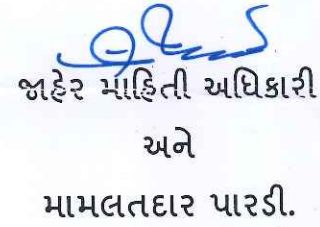 જાહેર માહિતી અધિકારી
અને
મામલતદાર પારડી.